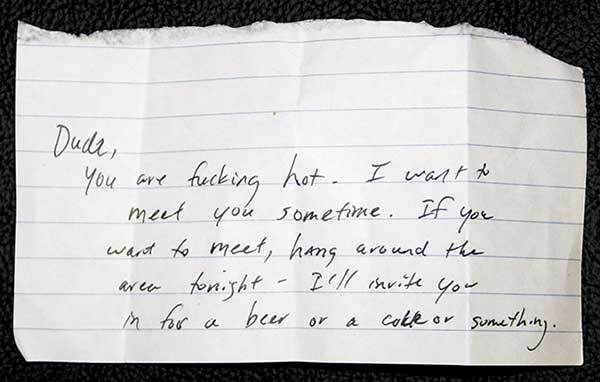 Dude,
You are fucking hot. I want to
meet you sometime. If you
want to meet, hang around the
area tonight - I'll invite you
in for a beer or a coke or something.